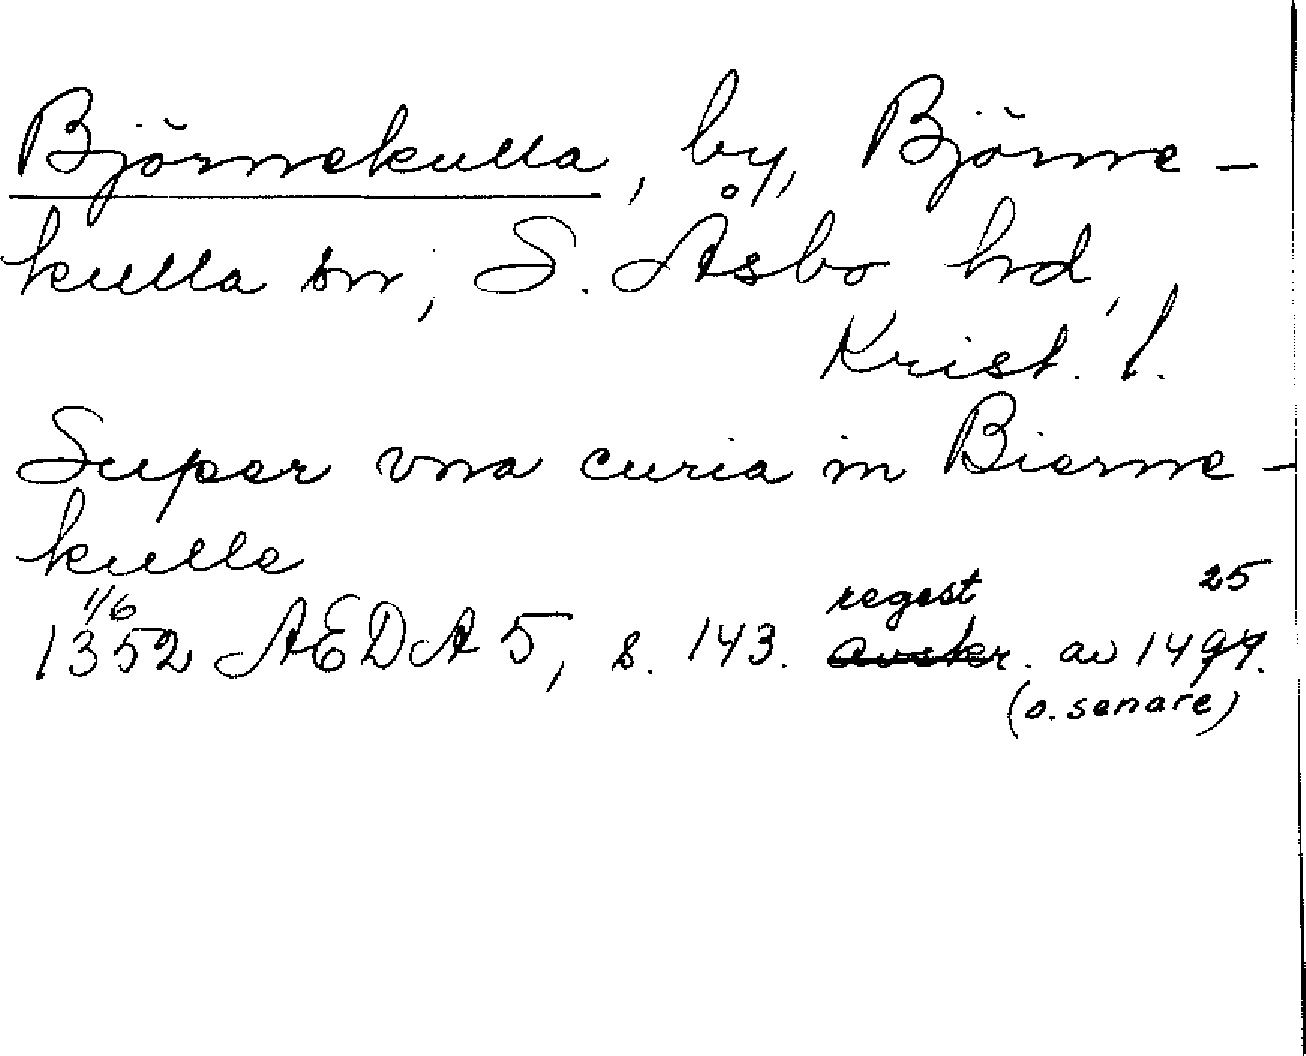 Björnekulla, by, Björne-
kulla sn, S. Åsbo hd,
Krist. l.
Super vna curia in Bierne-
kulle
1/6
regest 25
1352 AEDA 5, s. 143. avskr. av 1494.
(o. senare)